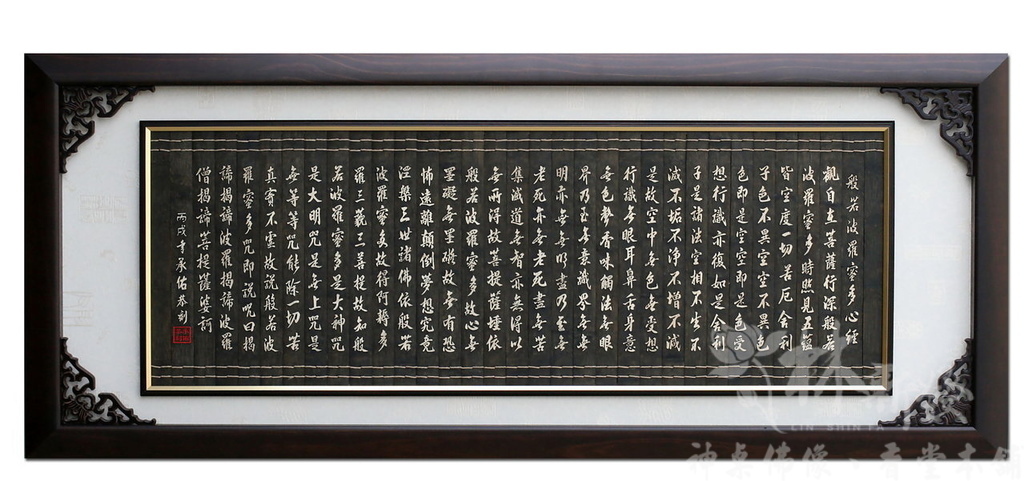 般若波羅蜜多心經
觀自在菩薩行深般若
波羅蜜多時照見五蘊
皆空度一切苦厄舍利
子色不異空空不異色
色即是空空即是色受
想行識亦復如是舍利
子是諸法空相不生不
滅不垢不淨不增不減
是故空中無色無受想
行識無眼耳鼻舌身意
無色聲香味觸法無眼
界乃至無意識界無無
明亦無無明盡乃至無
老死亦無老死盡無苦
集滅道無智亦無得以
無所得故菩提薩埵依
般若波羅蜜多故心無
罣礙無罣礙故無有恐
怖遠離顛倒夢想究竟
涅槃三世諸佛依般若
波羅蜜多故得阿耨多
羅三藐三菩提故知般
若波羅蜜多是大神咒
是大明咒是無上咒是
無等等咒能除一切苦
真實不虛故說般若波
羅蜜多咒即說咒曰揭
諦揭諦波羅揭諦波羅
僧揭諦菩提薩婆訶
丙戌年承佑恭刻
LIN SHIN YA
神桌佛像、香堂本舖